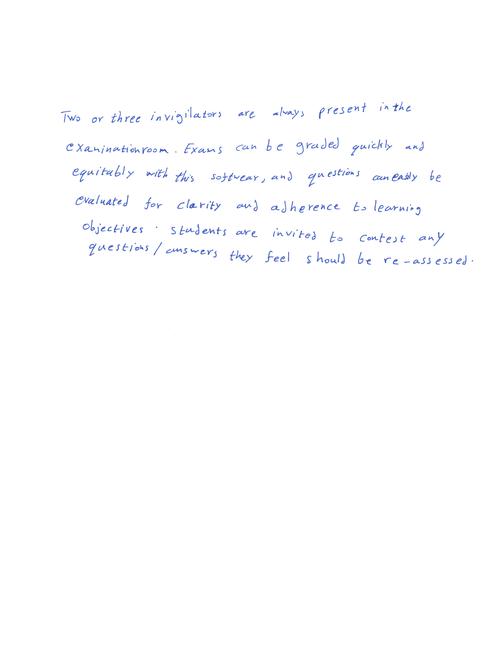 Two or three invigilators are always present in the
examination room. Exams can be graded quickly and
equitably with this softwear, and questions can easily be
evaluated for clarity and adherence to learning
objectives. students are invited to contest any
questions / answers they feel should be re-assessed.